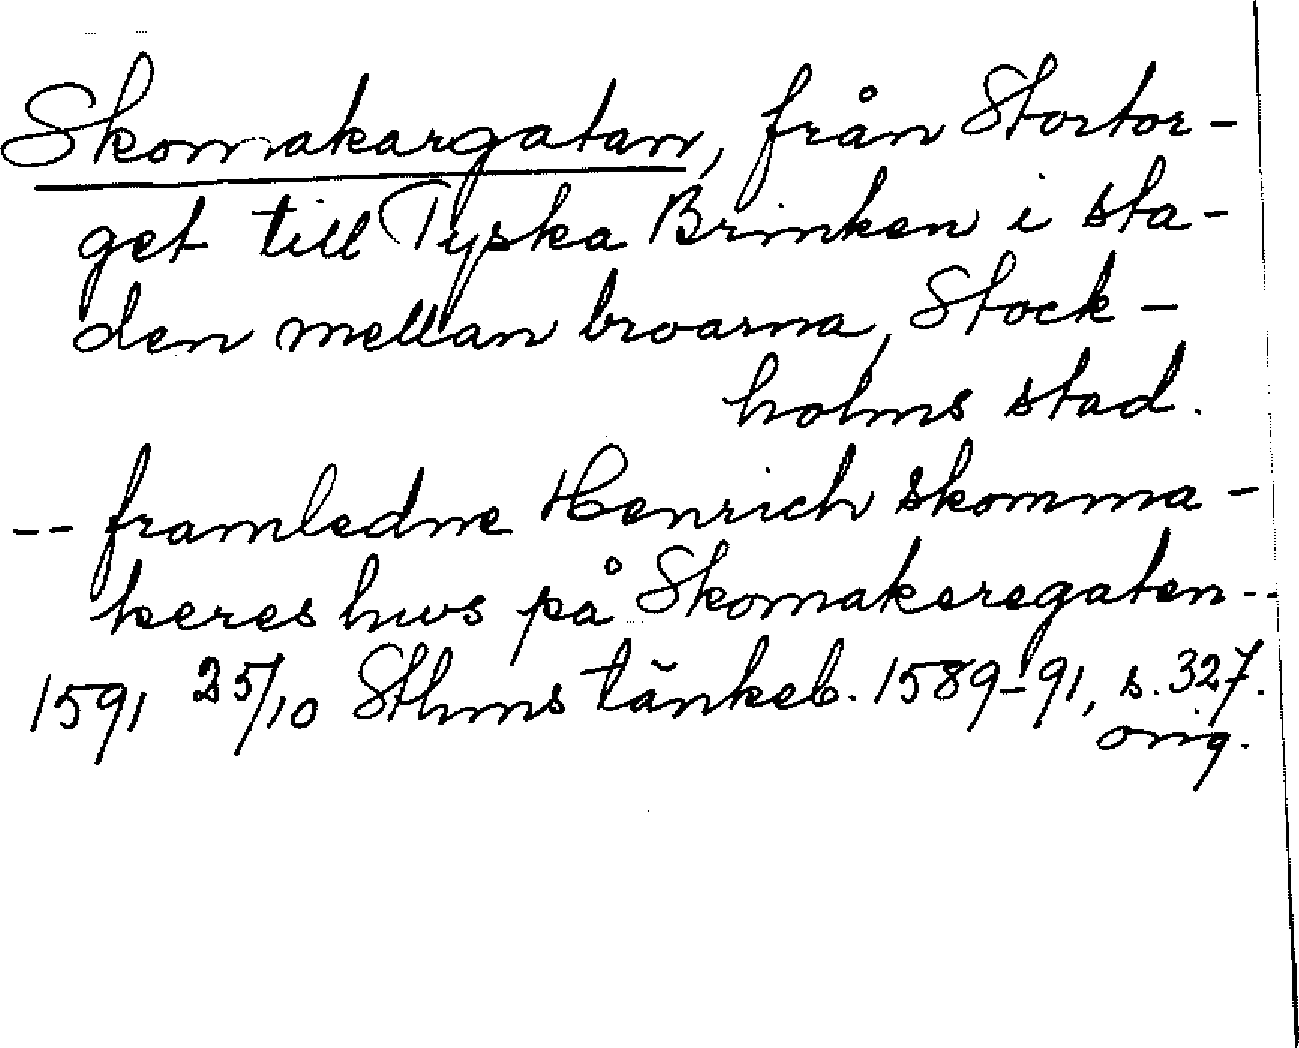 Skomakargatan, från Stortor-
get till Tyska Brinken i sta-
den mellan broarna, Stock-
holms stad.
-- framledne Henrich skomma-
keres hws på Skomakeregaten--
1591 25/10 Sthms tänkeb. 1589-91, s. 327.
orig.